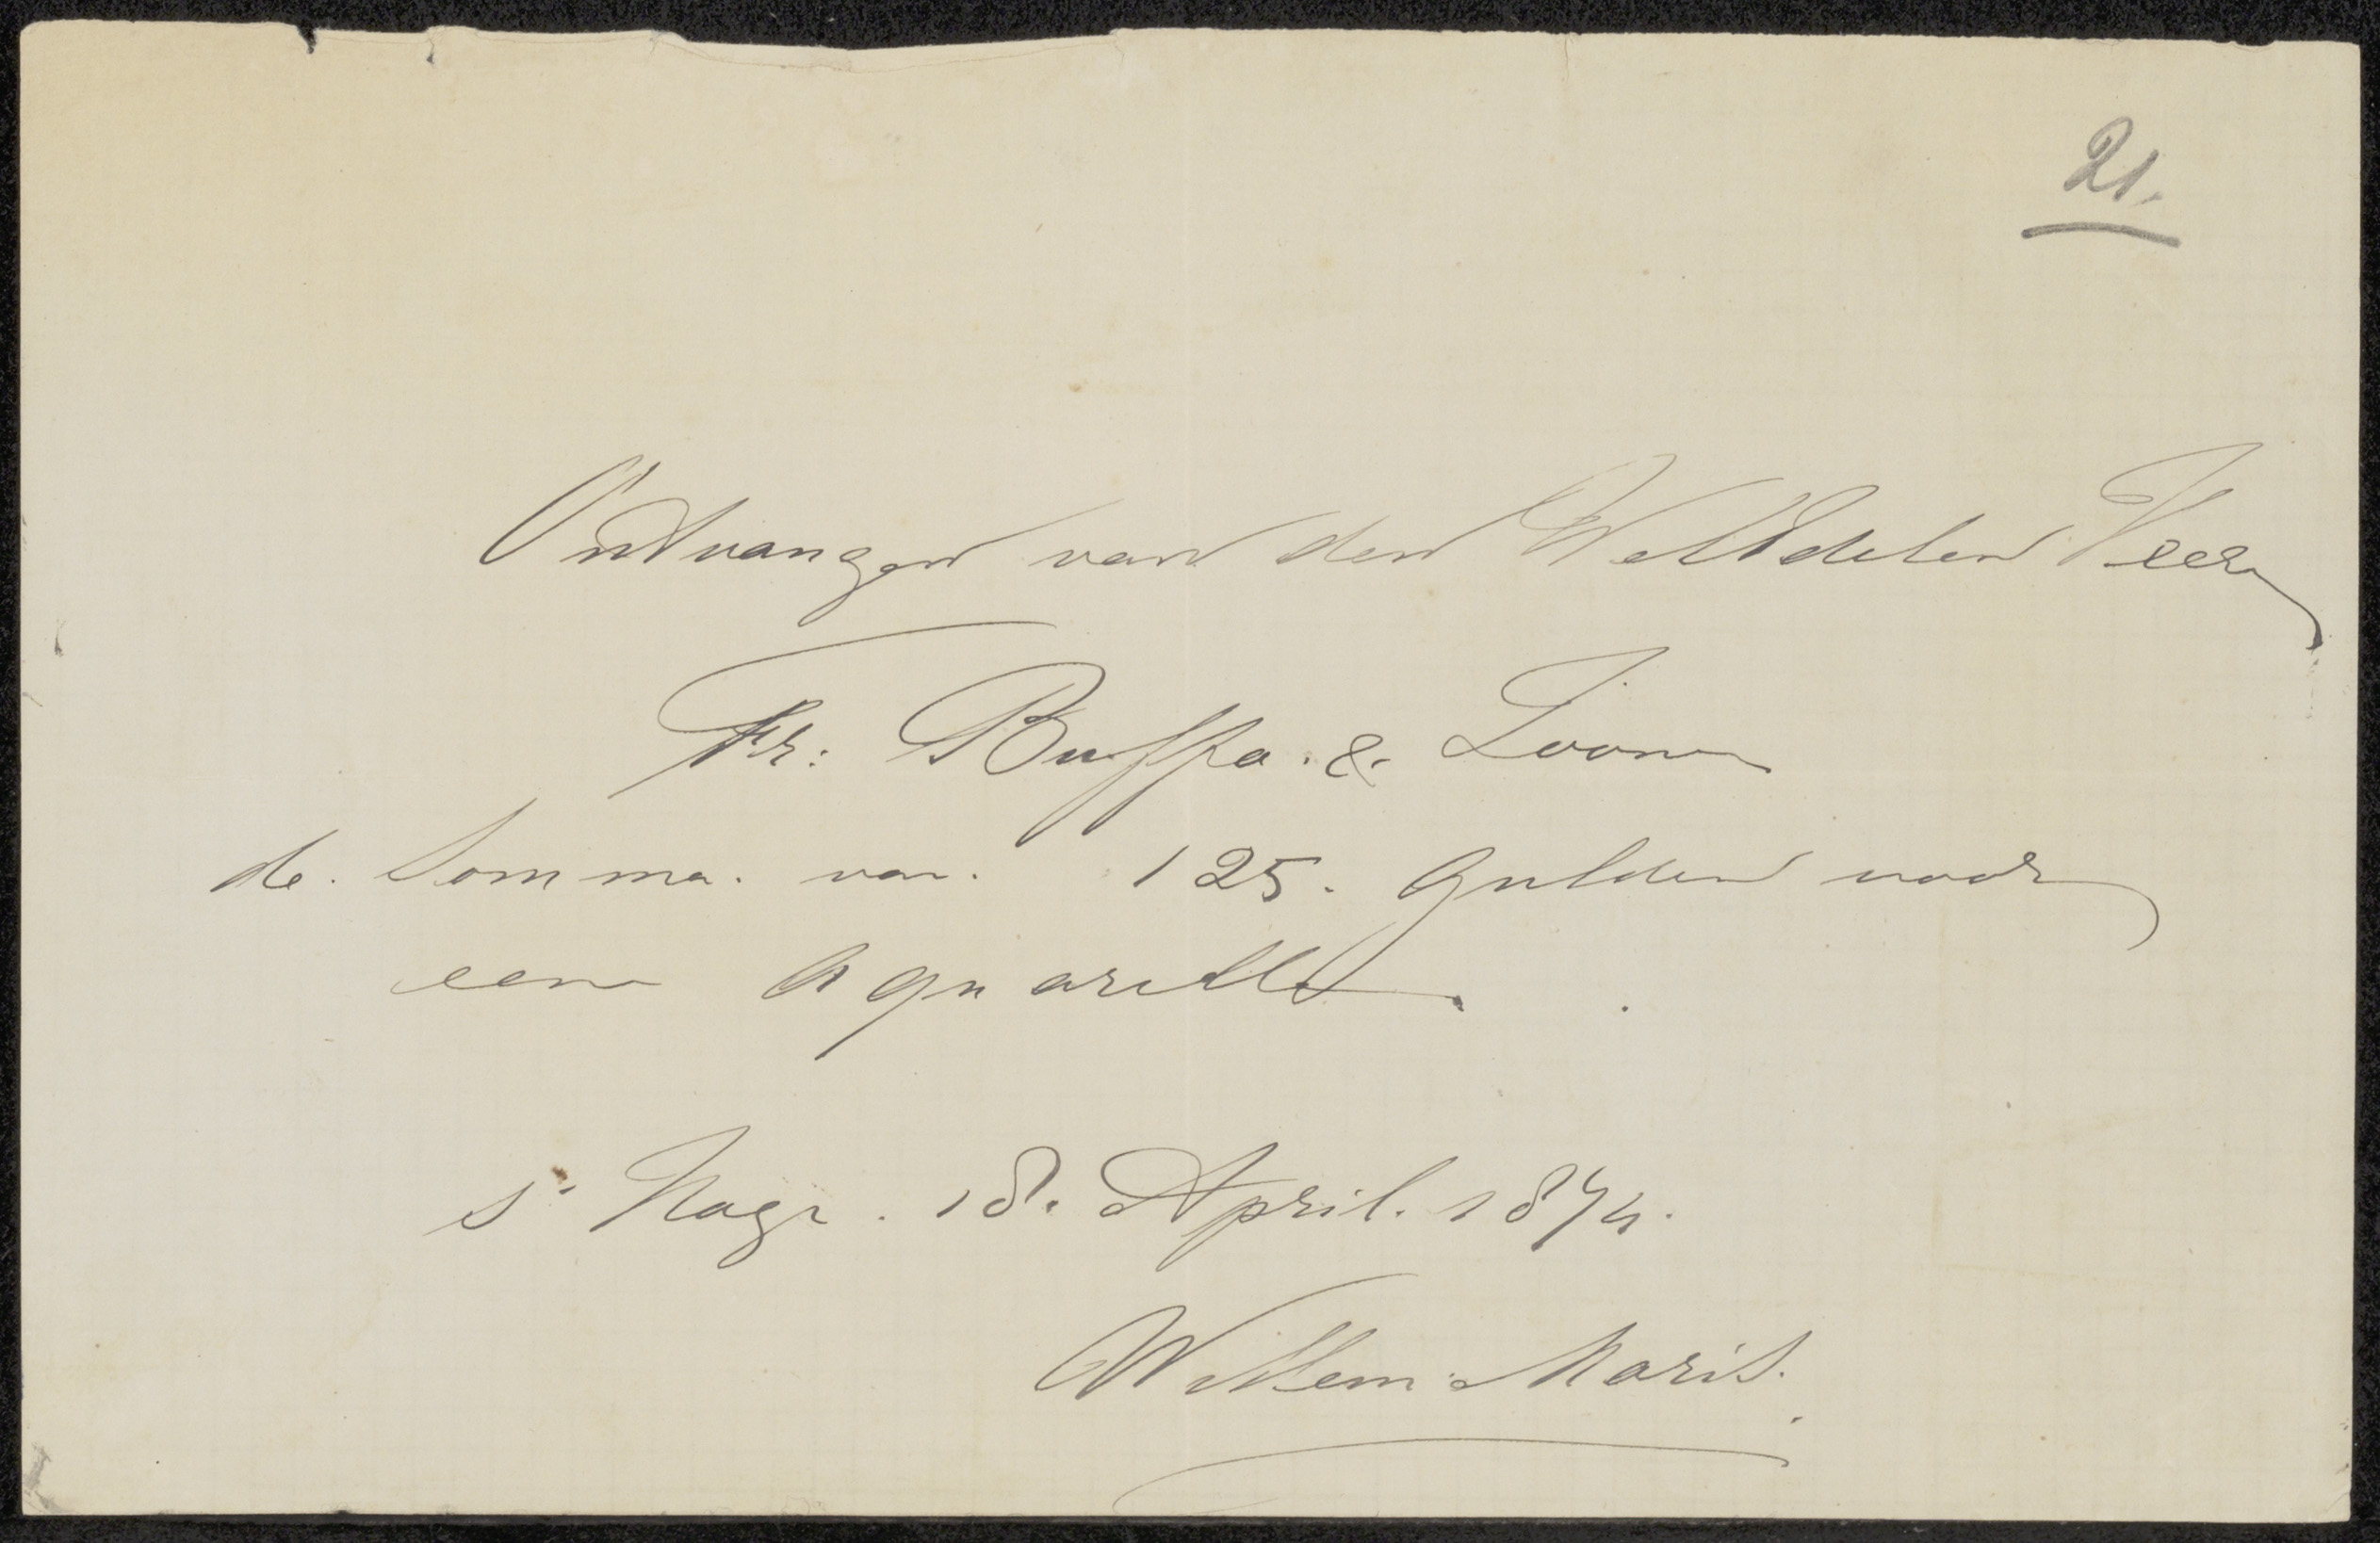 21.
Ontvangen van den WelEdelen Heer
Fr: Buffa. & Zoonen
de. Somma. van. 125. gulden voor
eene Aquarelle.
s' Hage. 18. April. 1874.
Willem Maris.